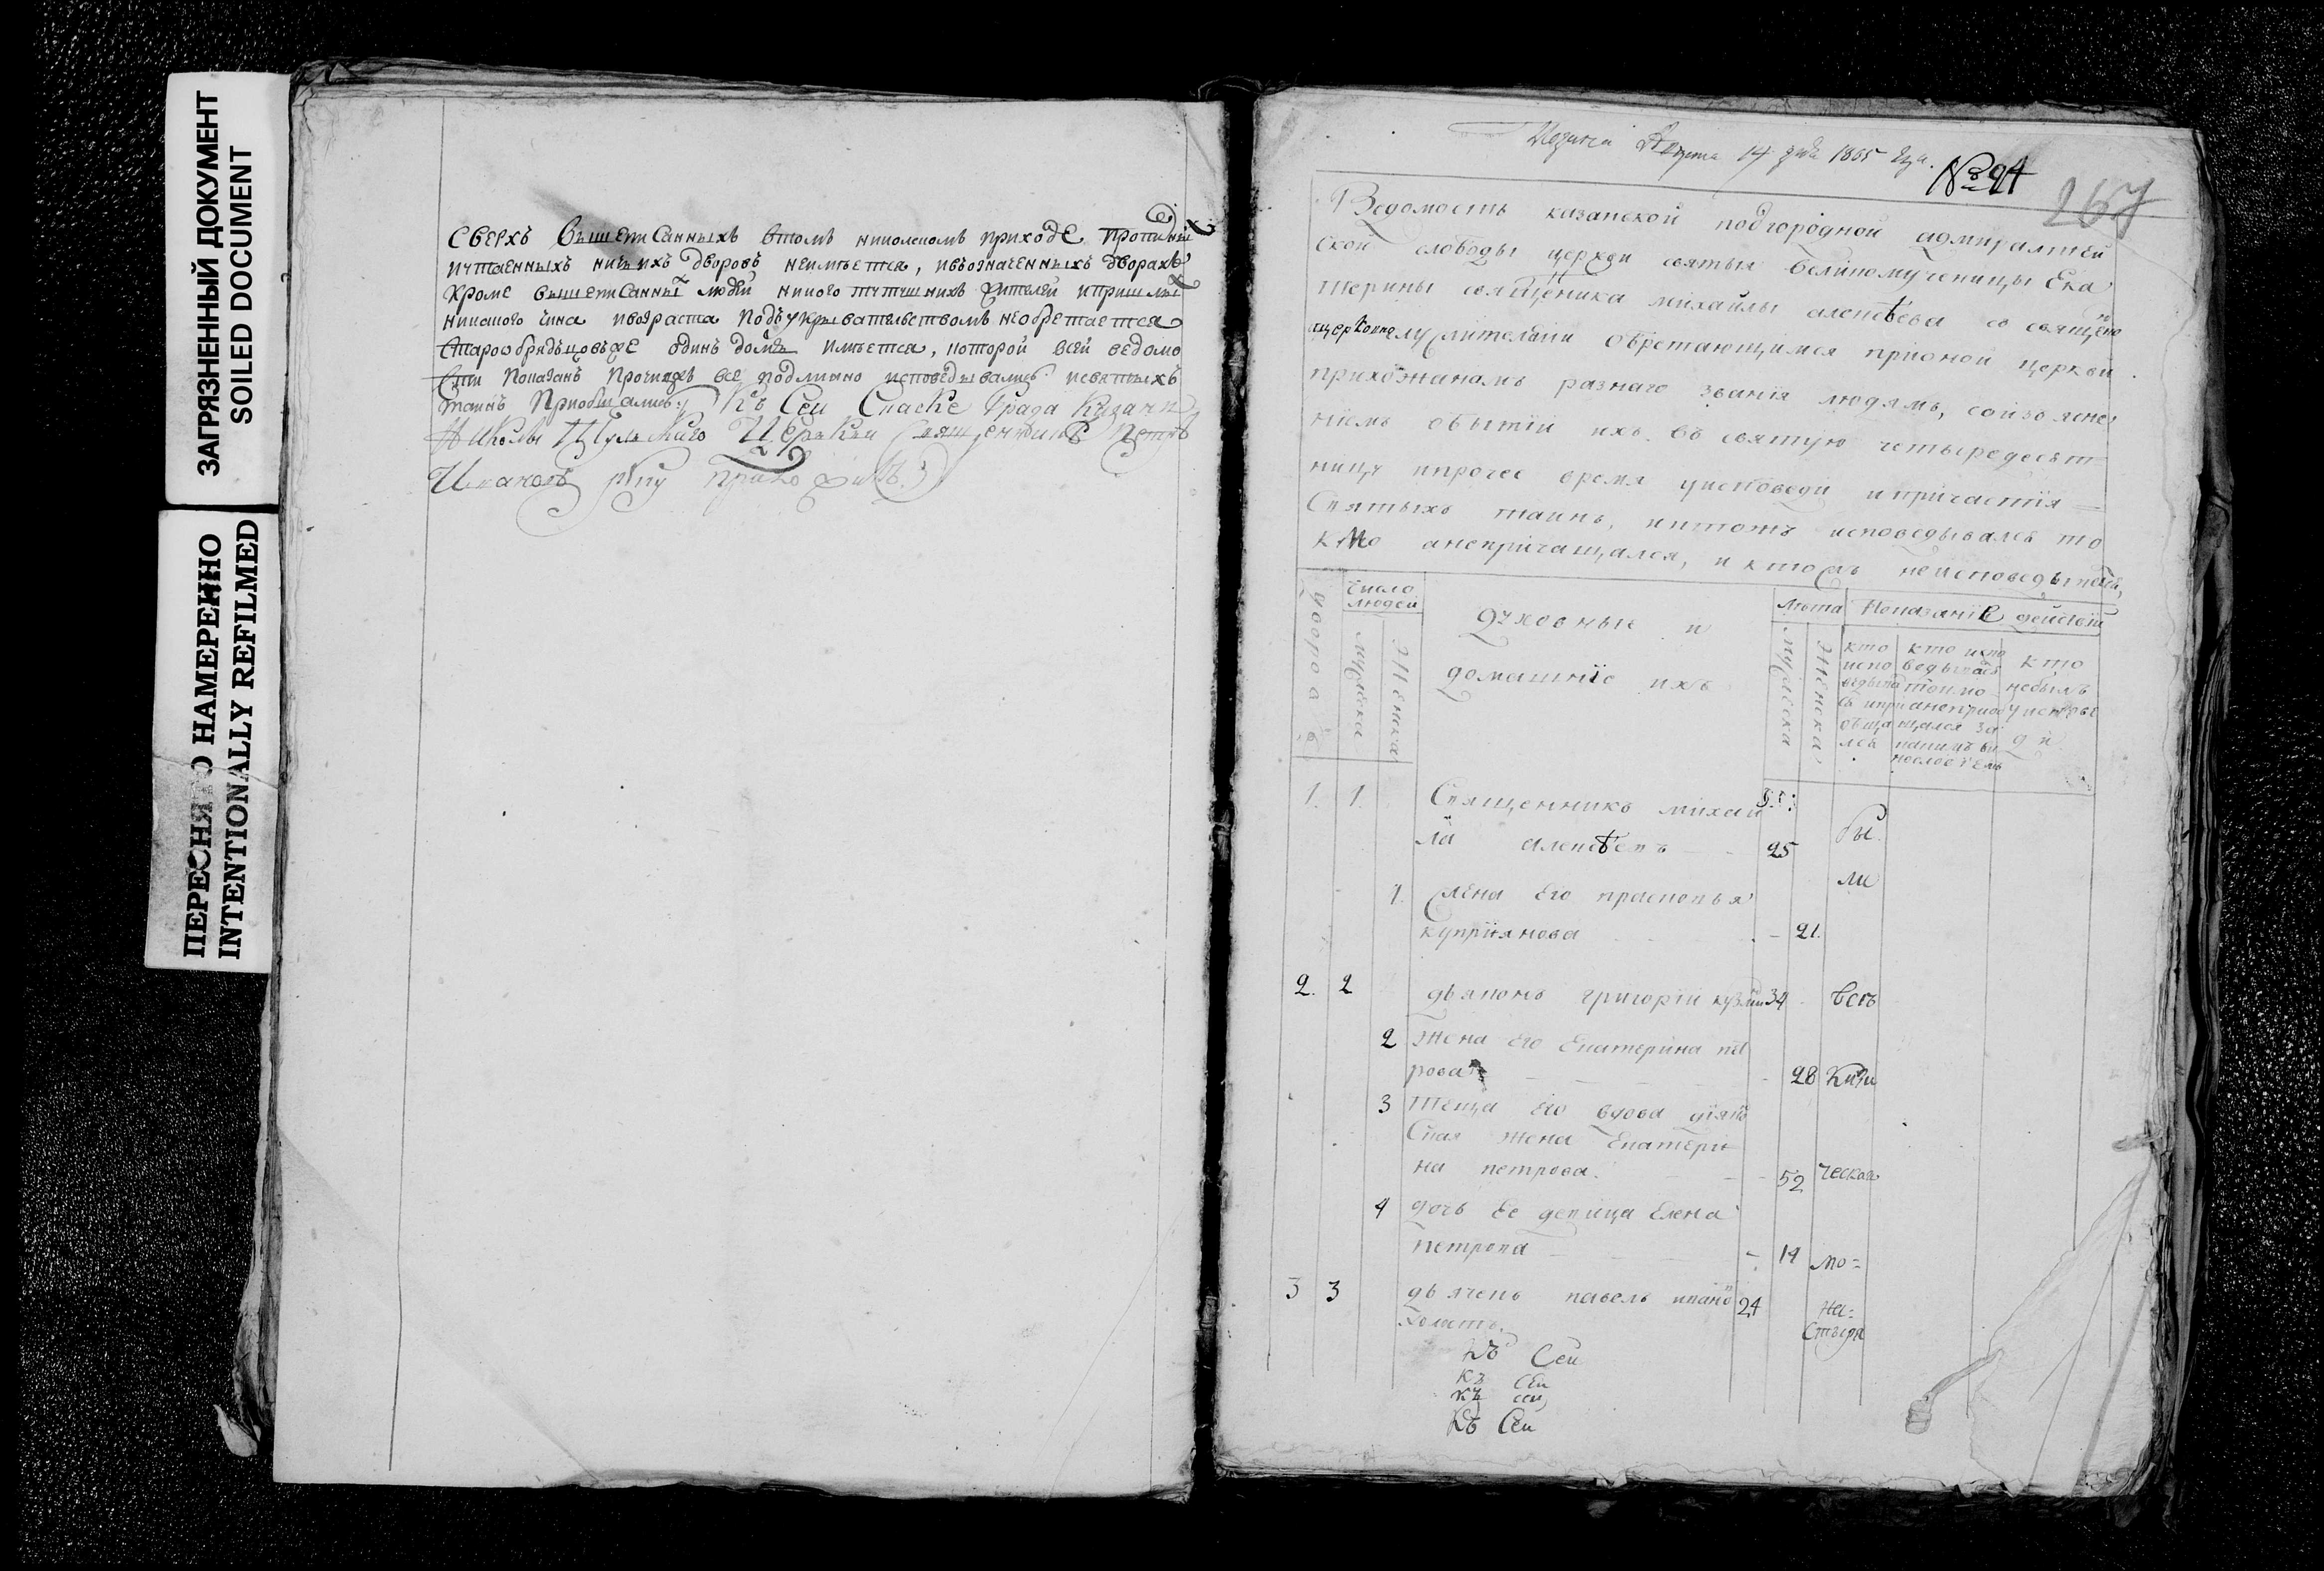 ЗАГРЯЗНЕННЫЙ ДОКУМЕНТ
SOILED DOCUMENT
ПЕРЕСНЯТО НАМЕРЕННО
INTENTIONALLY REFILMED
сверхъ вышеписанныхъ втомъ николскомъ приходе
ничьихъ дворовъ неимѣется, ивъозначенныхъ дворахъ
кроме вышеписанны людей никого жителей ипришлы
никакого чина ивозраста подъукрывательствомъ необретается
старообрядцовъже одинъ домъ имѣется, которой всей ведомо
сти показанъ прочиежъ все подлинно исповедывались исвятыхъ
таинъ приобщались Къ Сей Града Казани
Николы Церькви священникъ Петръ
руку приложилъ
14 1805
№ 94
267
Ведомость казанской подгородной адмиралтей
ской слободы церкви святыя великомученицы Ека
терины священника михаилы алексѣева со священно
церковнослужители обретающимся прионой церкви
прихожаномъ разнаго званïя людямъ, сойзъясне
нïемъ обытïи ихъ въ святую четыредесят
ницу ипрочее время уисповеди ипричастïя
Святыхъ таинъ, иктожъ исповедывался то
кмо анепричащался, и ктожъ неисповедывался
дворовъ
число людей
мужеска
женска
Духовные и
домашнïе ихъ
лѣта
мужеска
женска
Показанïе действïй
кто испо ведывался ипри общался
кто испо ведывался токмо анеприоб щался за
кто небылъ уиспове ди
1. 1. Священникъ михаи
ла алексѣевъ 25 бы
1. жена его
куприянова 21. ли
2. 2 дьяконъ григорïи 34 всѣ
2 жена его екатерина пет
рова 28
3 теща его вдова
ская жена екатери
на петрова. 52 ческая
4 дочь ее девица елена
петрова 14 мо=
3 3 дьячекъ павелъ ивановъ 24 на=
холостъ. стыря
Къ Сей
къ сей
къ сей
Къ Сей